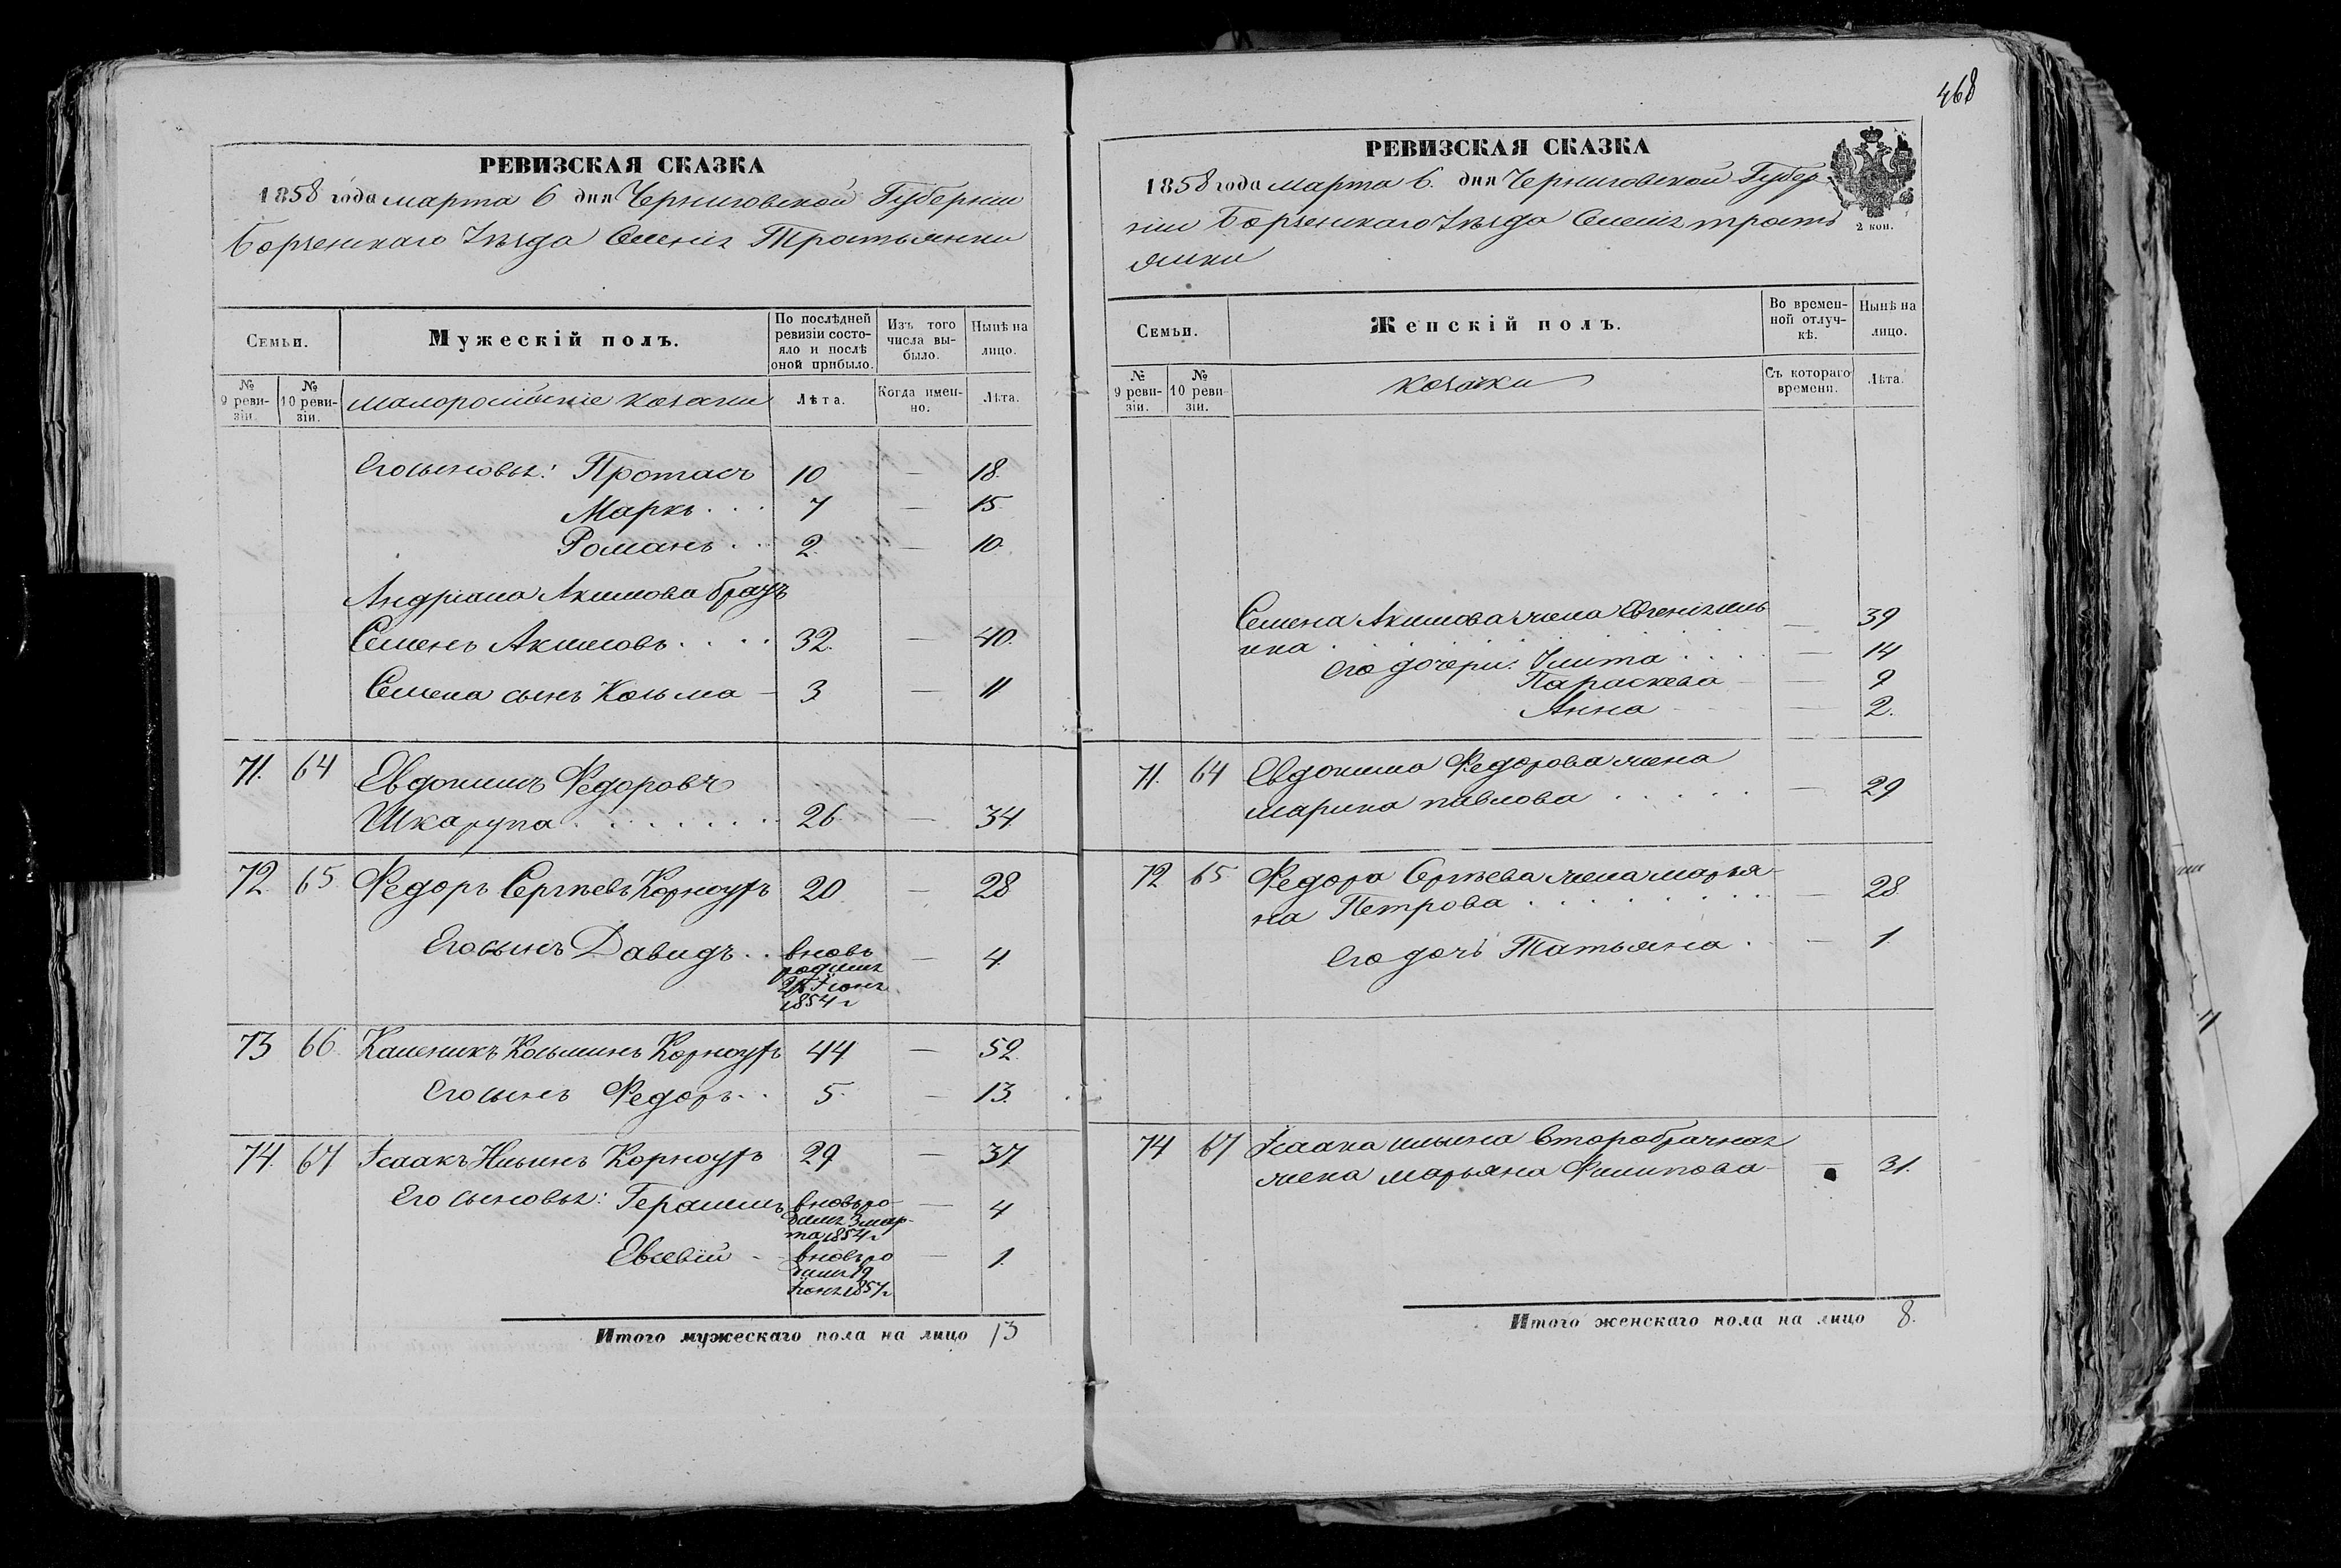 468
РЕВИЗСКАЯ СКАЗКА
1858 года марта 6 дня Черниговской Губернии
Борзенскаго Уезда Селенія Тростянки
Семьи.
Мужескій полъ.
По последней ревизіи состояло и после оной прибыло.
Изъ того числа выбыло.
Ныне на лицо.
№ 9 ревизіи.
№ 10 ревизіи.
малоросійскіе козаки
Лета.
Когда именно.
Лета.
Его сыновья: Протасъ 10 — 18.
Маркъ . . . 7 — 15.
Романъ . . 2. — 10.
Андріана Акимова братъ
Семенъ Акимовъ . . . . 32. — 40.
Семена сынъ Козьма — 3 — 11
71. 64 Евдокимъ Федоровъ
Шкарупа . . . . . . . 26. — 34.
72. 65. Федоръ Сергеевъ Корноухъ 20 — 28
Его сынъ Давидъ . . вновь — 4.
родился
1854 г
73 66. Каленикъ Козьминъ Корноухъ 44 — 52.
Его сынъ Федоръ . . 5. — 13.
74. 67 Исаакъ Ильинъ Корноухъ 29 — 37.
Его сыновья: Герасимъ вновь ро- — 4
дился 3 мар-
та 1854 г
Евсевій - - вновь ро — 1.
дился 19
1857 г
Итого мужескаго пола на лицо 13
РЕВИЗСКАЯ СКАЗКА
1858 года марта 6. дня Черниговской Губер
ніи Борзенскаго Уезда Селенія трость
янки
2 коп.
Семьи.
Женскій полъ.
Во временной отлучкѣ.
Нынѣ на лицо.
№ 9 ревизіи.
№ 10 ревизіи.
козачки
Съ котораго времени.
Лѣта.
Семена Акимова жена — 39
Его дочери: Улита . . . . — 14
Параскева — — 9
Анна — 2.
71. 64 Евдокима Федорова жена
марина павлова . . . . . — 29
72 65 Федора Сергеева жена марья-
на Петрова . . . . . . . . — 28
Его дочь Татьяна . — 1.
74 67 Исаака ильина второбрачная
жена марьяна Филипова — 31.
Итого женскаго пола на лицо 8.